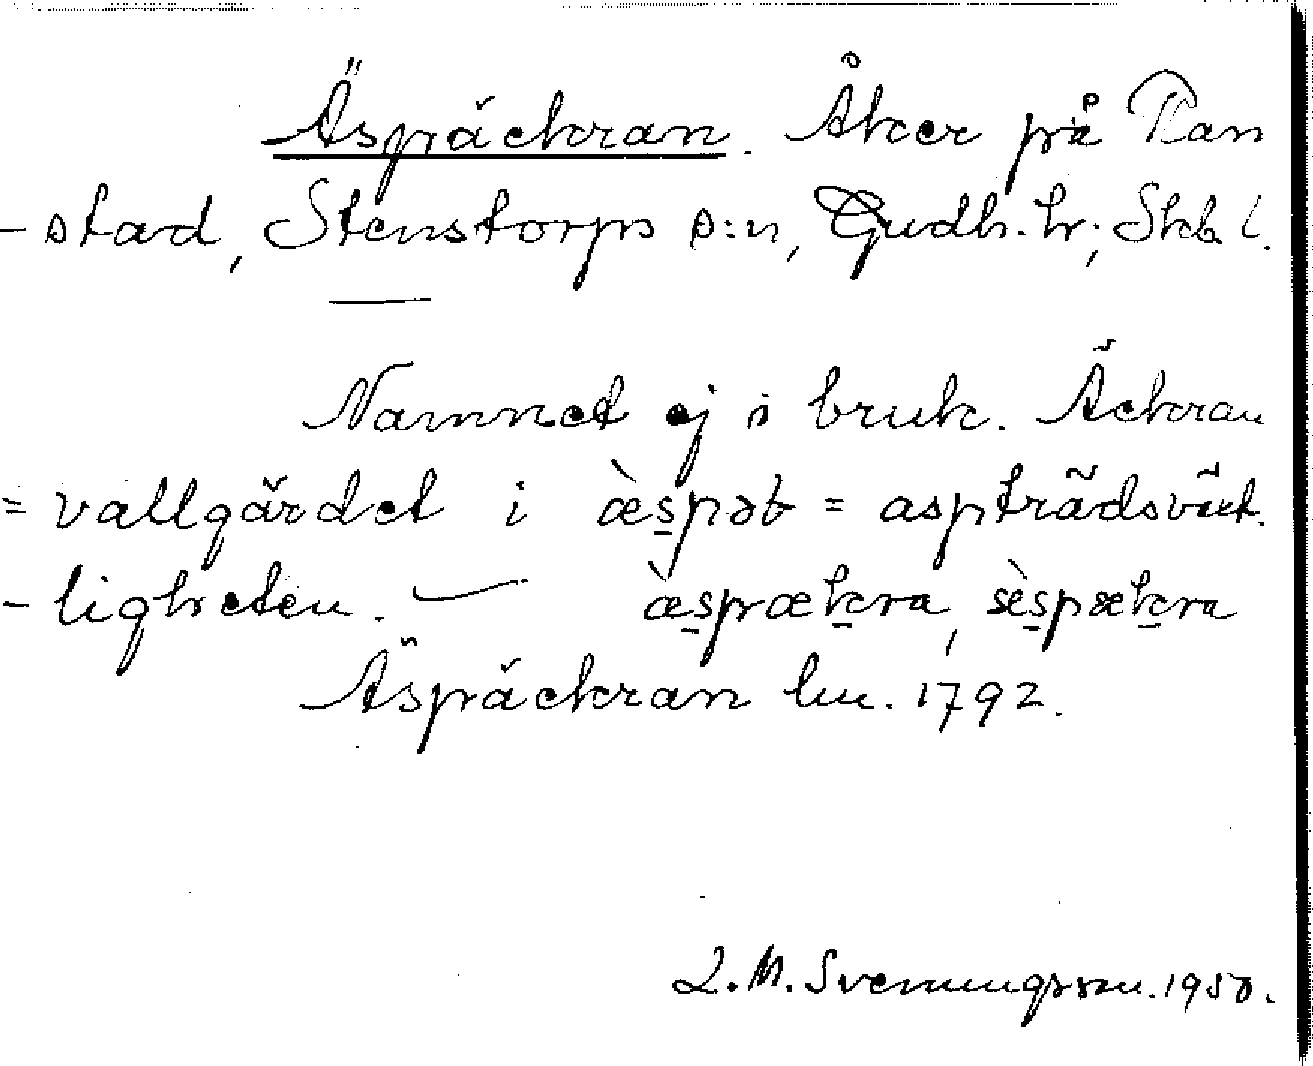 Äspäckran. Åker på Ran
-stad, Stenstorps s:n, Gudh. hr; Skb. l.
Namnet ej i bruk. Äckran
= vallgärdet i æ̀s̠pət = aspträdsväxt.
-ligheten. — æ̀s̠pæk̠ra, sè̠s̠pæk̠ra
Äspäckran lm. 1792.
L. M. Svenungsson. 1950.